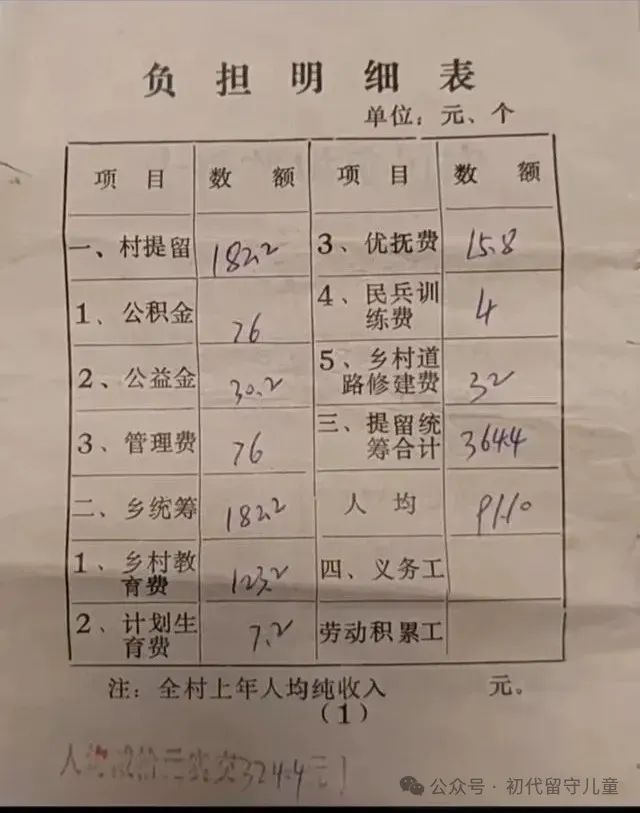 负担明细表
单位：元、个
项目 数额 项目 数额
一、村提留 182.2 3、优抚费 15.8
1、公积金 76 4、民兵训练费 4
2、公益金 30.2 5、乡村道路修建费 32
3、管理费 76 三、提留统筹合计 364.4
二、乡统筹 182.2 人均 91.10
1、乡村教育费 123.2 四、义务工
2、计划生育费 7.2 劳动积累工
注：全村上年人均纯收入 元。
（1）
人 324.4元
公众号·初代留守儿童